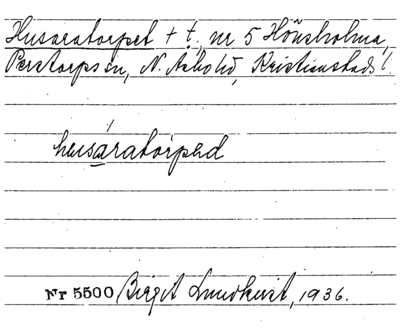 Husaratorpet + t., nr 5 Hönsholma,
Perstorps sn, N. Åsbo hd, Kristianstads l.
husaratorped
Nr 5500 Birgit Lundkvist, 1936.